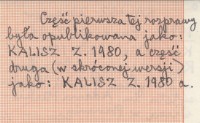 Część pierwsza tej rozprawy
była opublikowana jako:
KALISZ Z. 1980, a część
druga (w skróconej wersji)
jako: KALISZ Z. 1980 a.